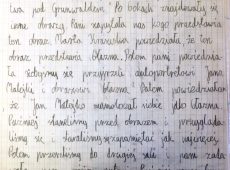 twa pod Grunwaldem". Po bokach znajdowały się
inne obrazy. Pani zapytała nas kogo przedstawia
ten obraz, Marta Krasucka powiedziała, że ten
obraz przedstawia błazna. Potem pani powiedzia-
ła żebyśmy się przyjrzeli autoportretowi Jana
Matejki i obrazowi błazna. Potem powiedziałam
że Jan Matejko namalował siebie dla błazna.
Później stanęliśmy przed obrazem i przygląda-
liśmy się i staraliśmy zapamiętać jak najwięcej.
Potem przeszliśmy do drugiej sali i pani zada-